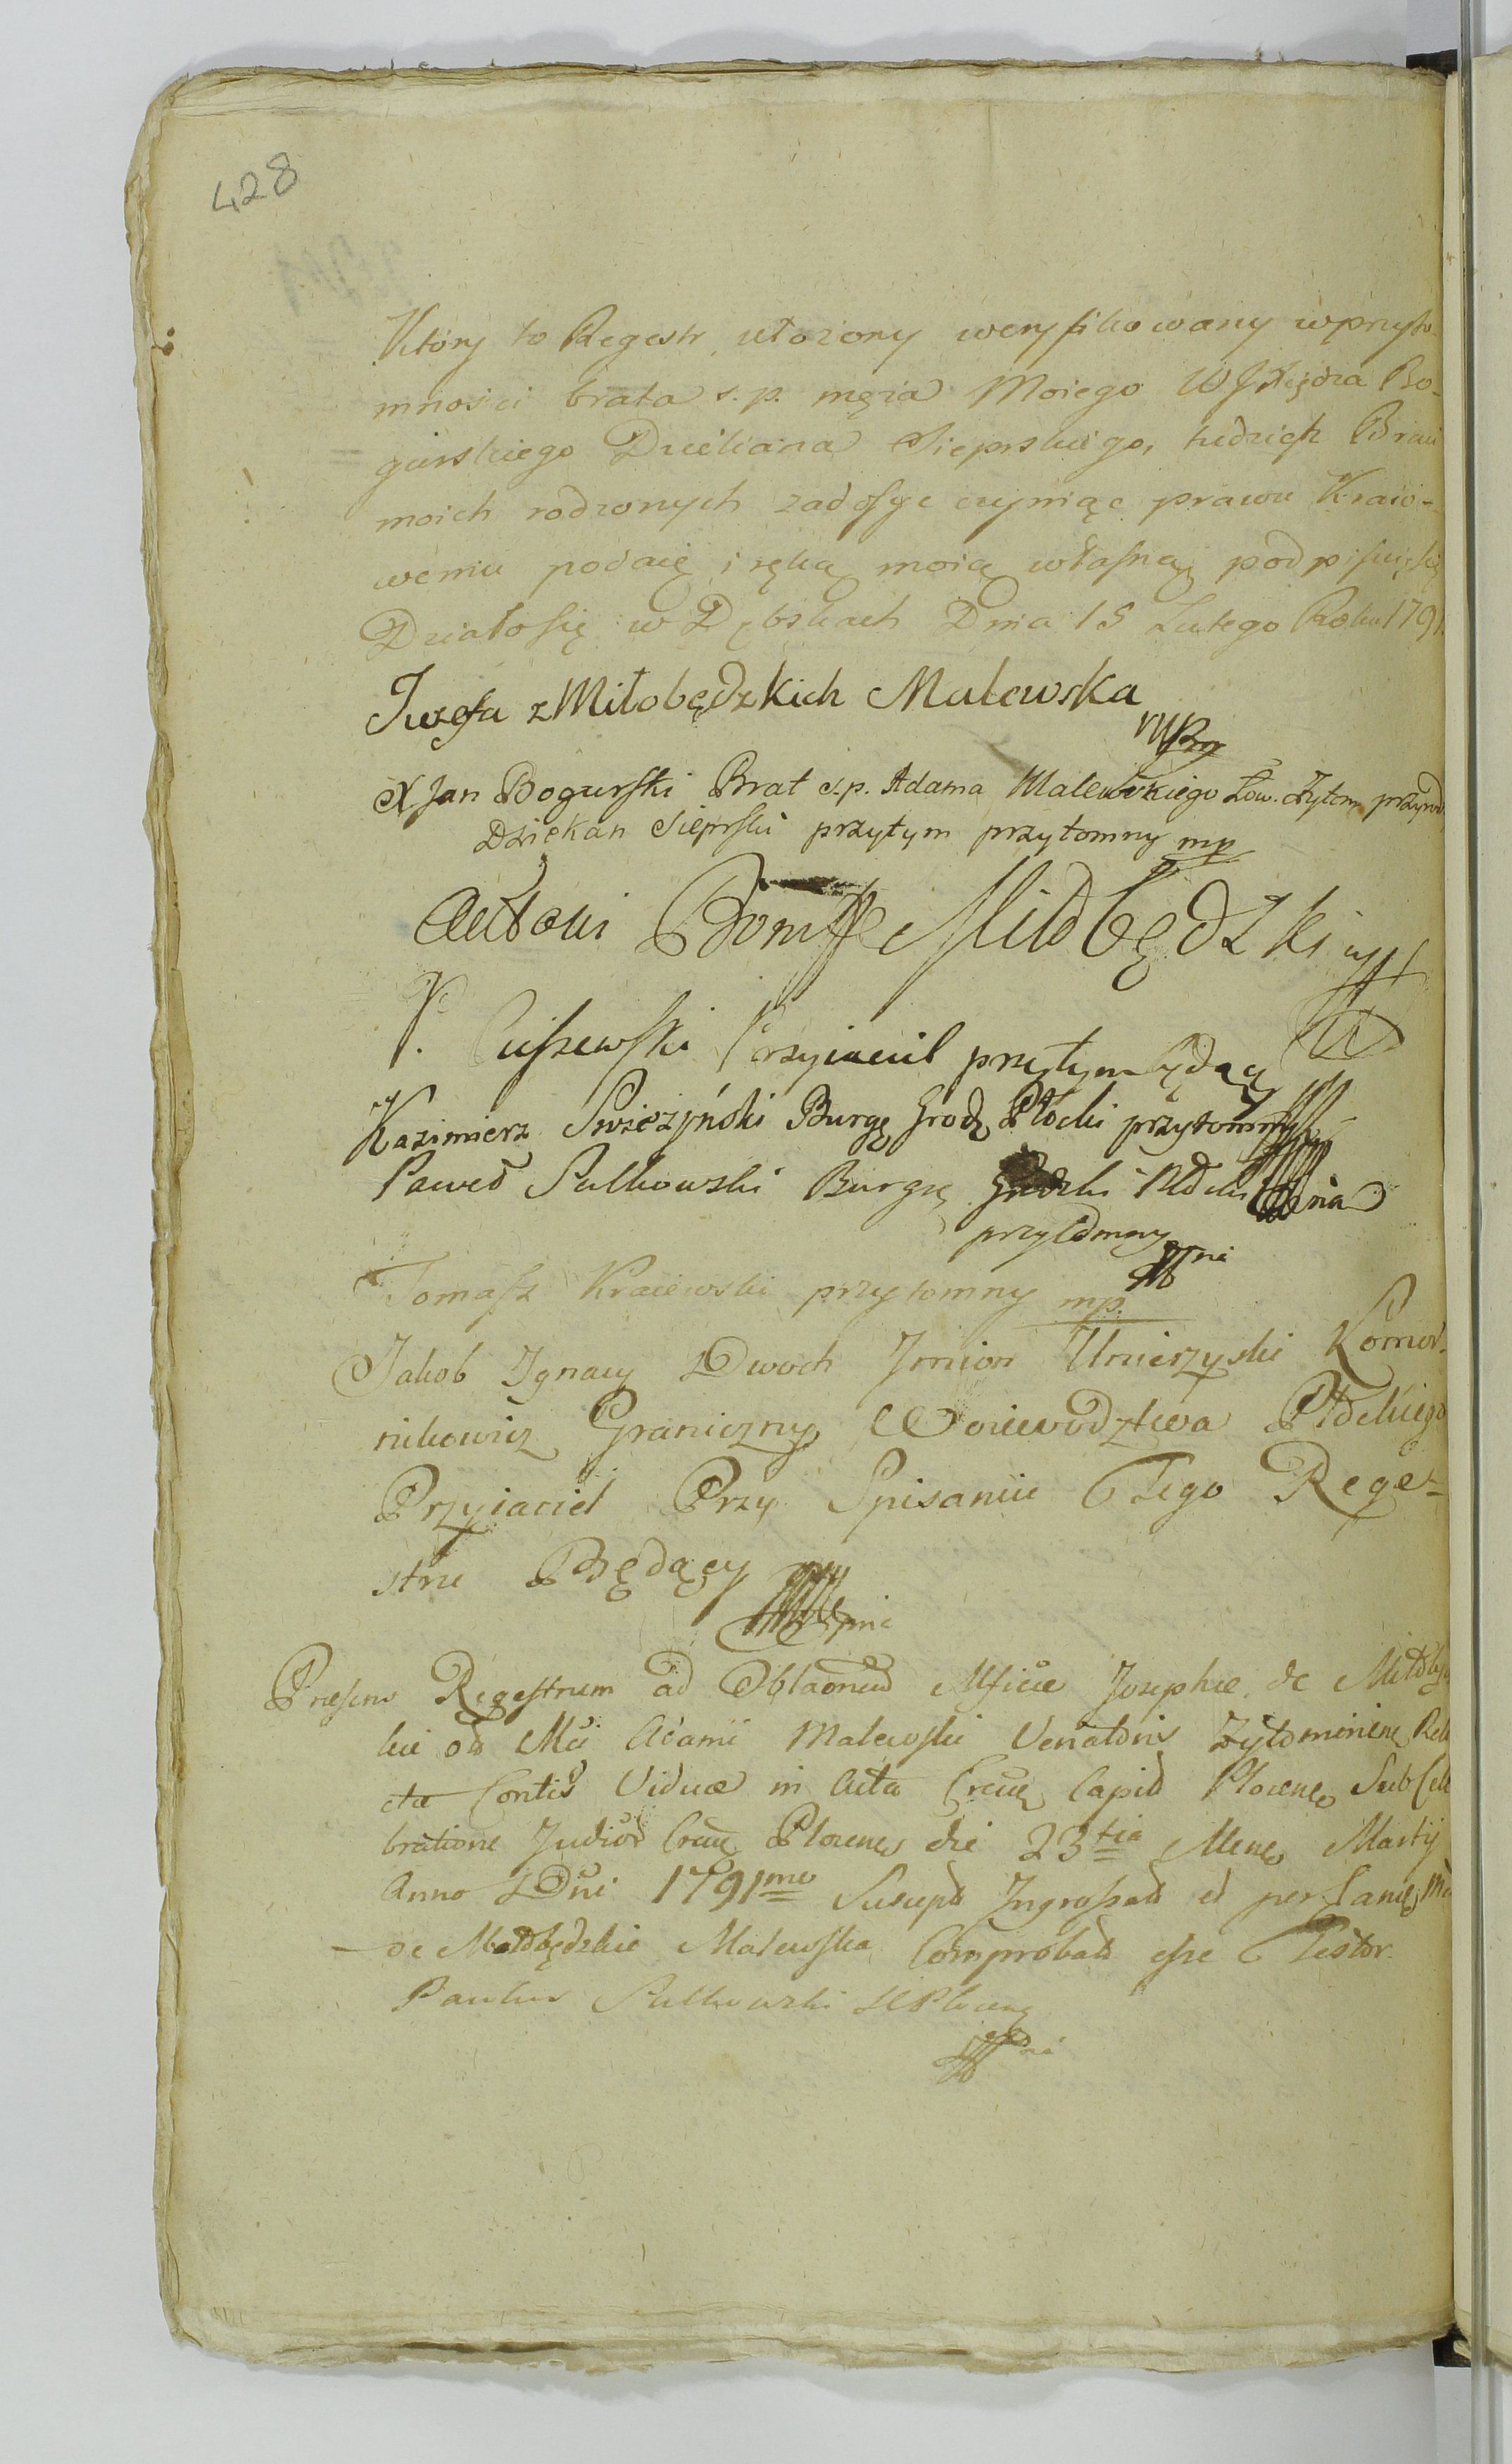 428
Który to Regestr ułożony weryfikowany wprzyto-
mności brata s. p. męża Moiego WJXiędza Bo-
gurskiego Dziekana Sieprskiego, tudzież Braci
moich rodzonych zadosyc czyniąc prawu Kraio-
wemu podaię i ręką moią własną podpisuię się
Działo się w Dębskach Dnia 15 Lutego Roku 1791.
Juzefa z Miłobędzkich Malewska
mpp
X Jan Bogurski Brat s.p. Adama Malewskiego Łow. Żytom. przyrod.
Dziekan Sieprski przytym przytomny mp
Antoni Miłobędzki
Ciszewski Przyiaciel przytym będący
Kazimierz Swieżyński Burgę Grodz Płocki przytomny
Paweł Sulkowski Burgrę Grodzki Płocki
przytomny
Tomasz Kraiewski przytomny mp.
Jakob Ignacy zDwoch Jmion Umierzyski Komor-
nikowicz Graniczny Woiewodztwa Płockiego
Przyiaciel Przy Spisaniu Tego Rege-
stru Będący
Præsens Regestrum ad Oblatoned Mficæ Josephæ de
Adami Malewski Venatoris Żytominiens
ctæ Viduæ in Acta Capit Plocens Sub Cele
bratione Judior Plocens die 23tia Mens Martij
Anno Dni 1791mo Suscept Ingrossat et per
de Miłobędzkie Malewska Comprobat esse Testor
Paulus Sulkowski